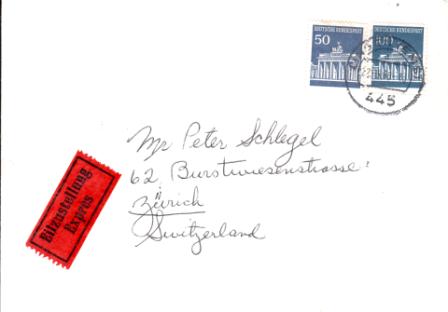 50
DEUTSCHE BUNDESPOST
100
DEUTSCHE BUNDESPOST
445
Mr Peter Schlegel
62 Burstwiesenstrasse
Zürich
Switzerland
Eilzustellung
Exprès